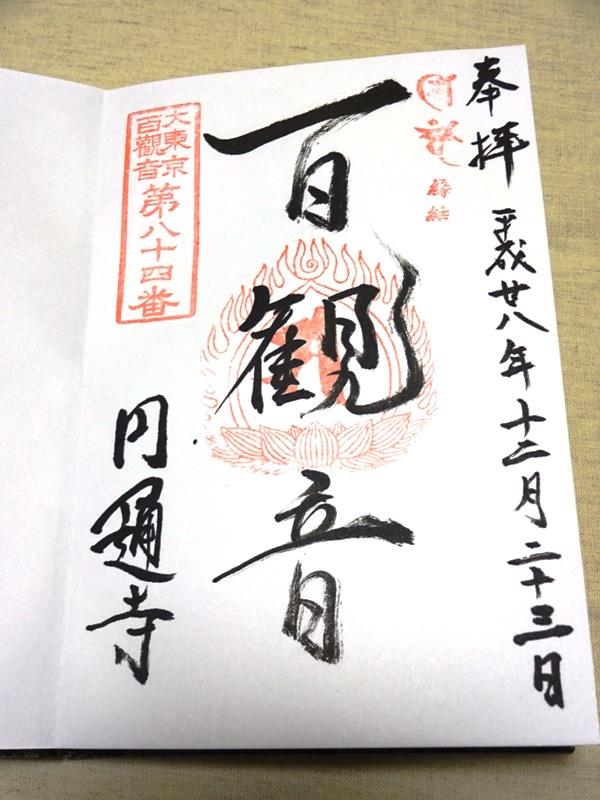 奉拝
平成廿八年十二月二十三日
縁結
百観音
大東京
百觀音
第八十四番
円通寺